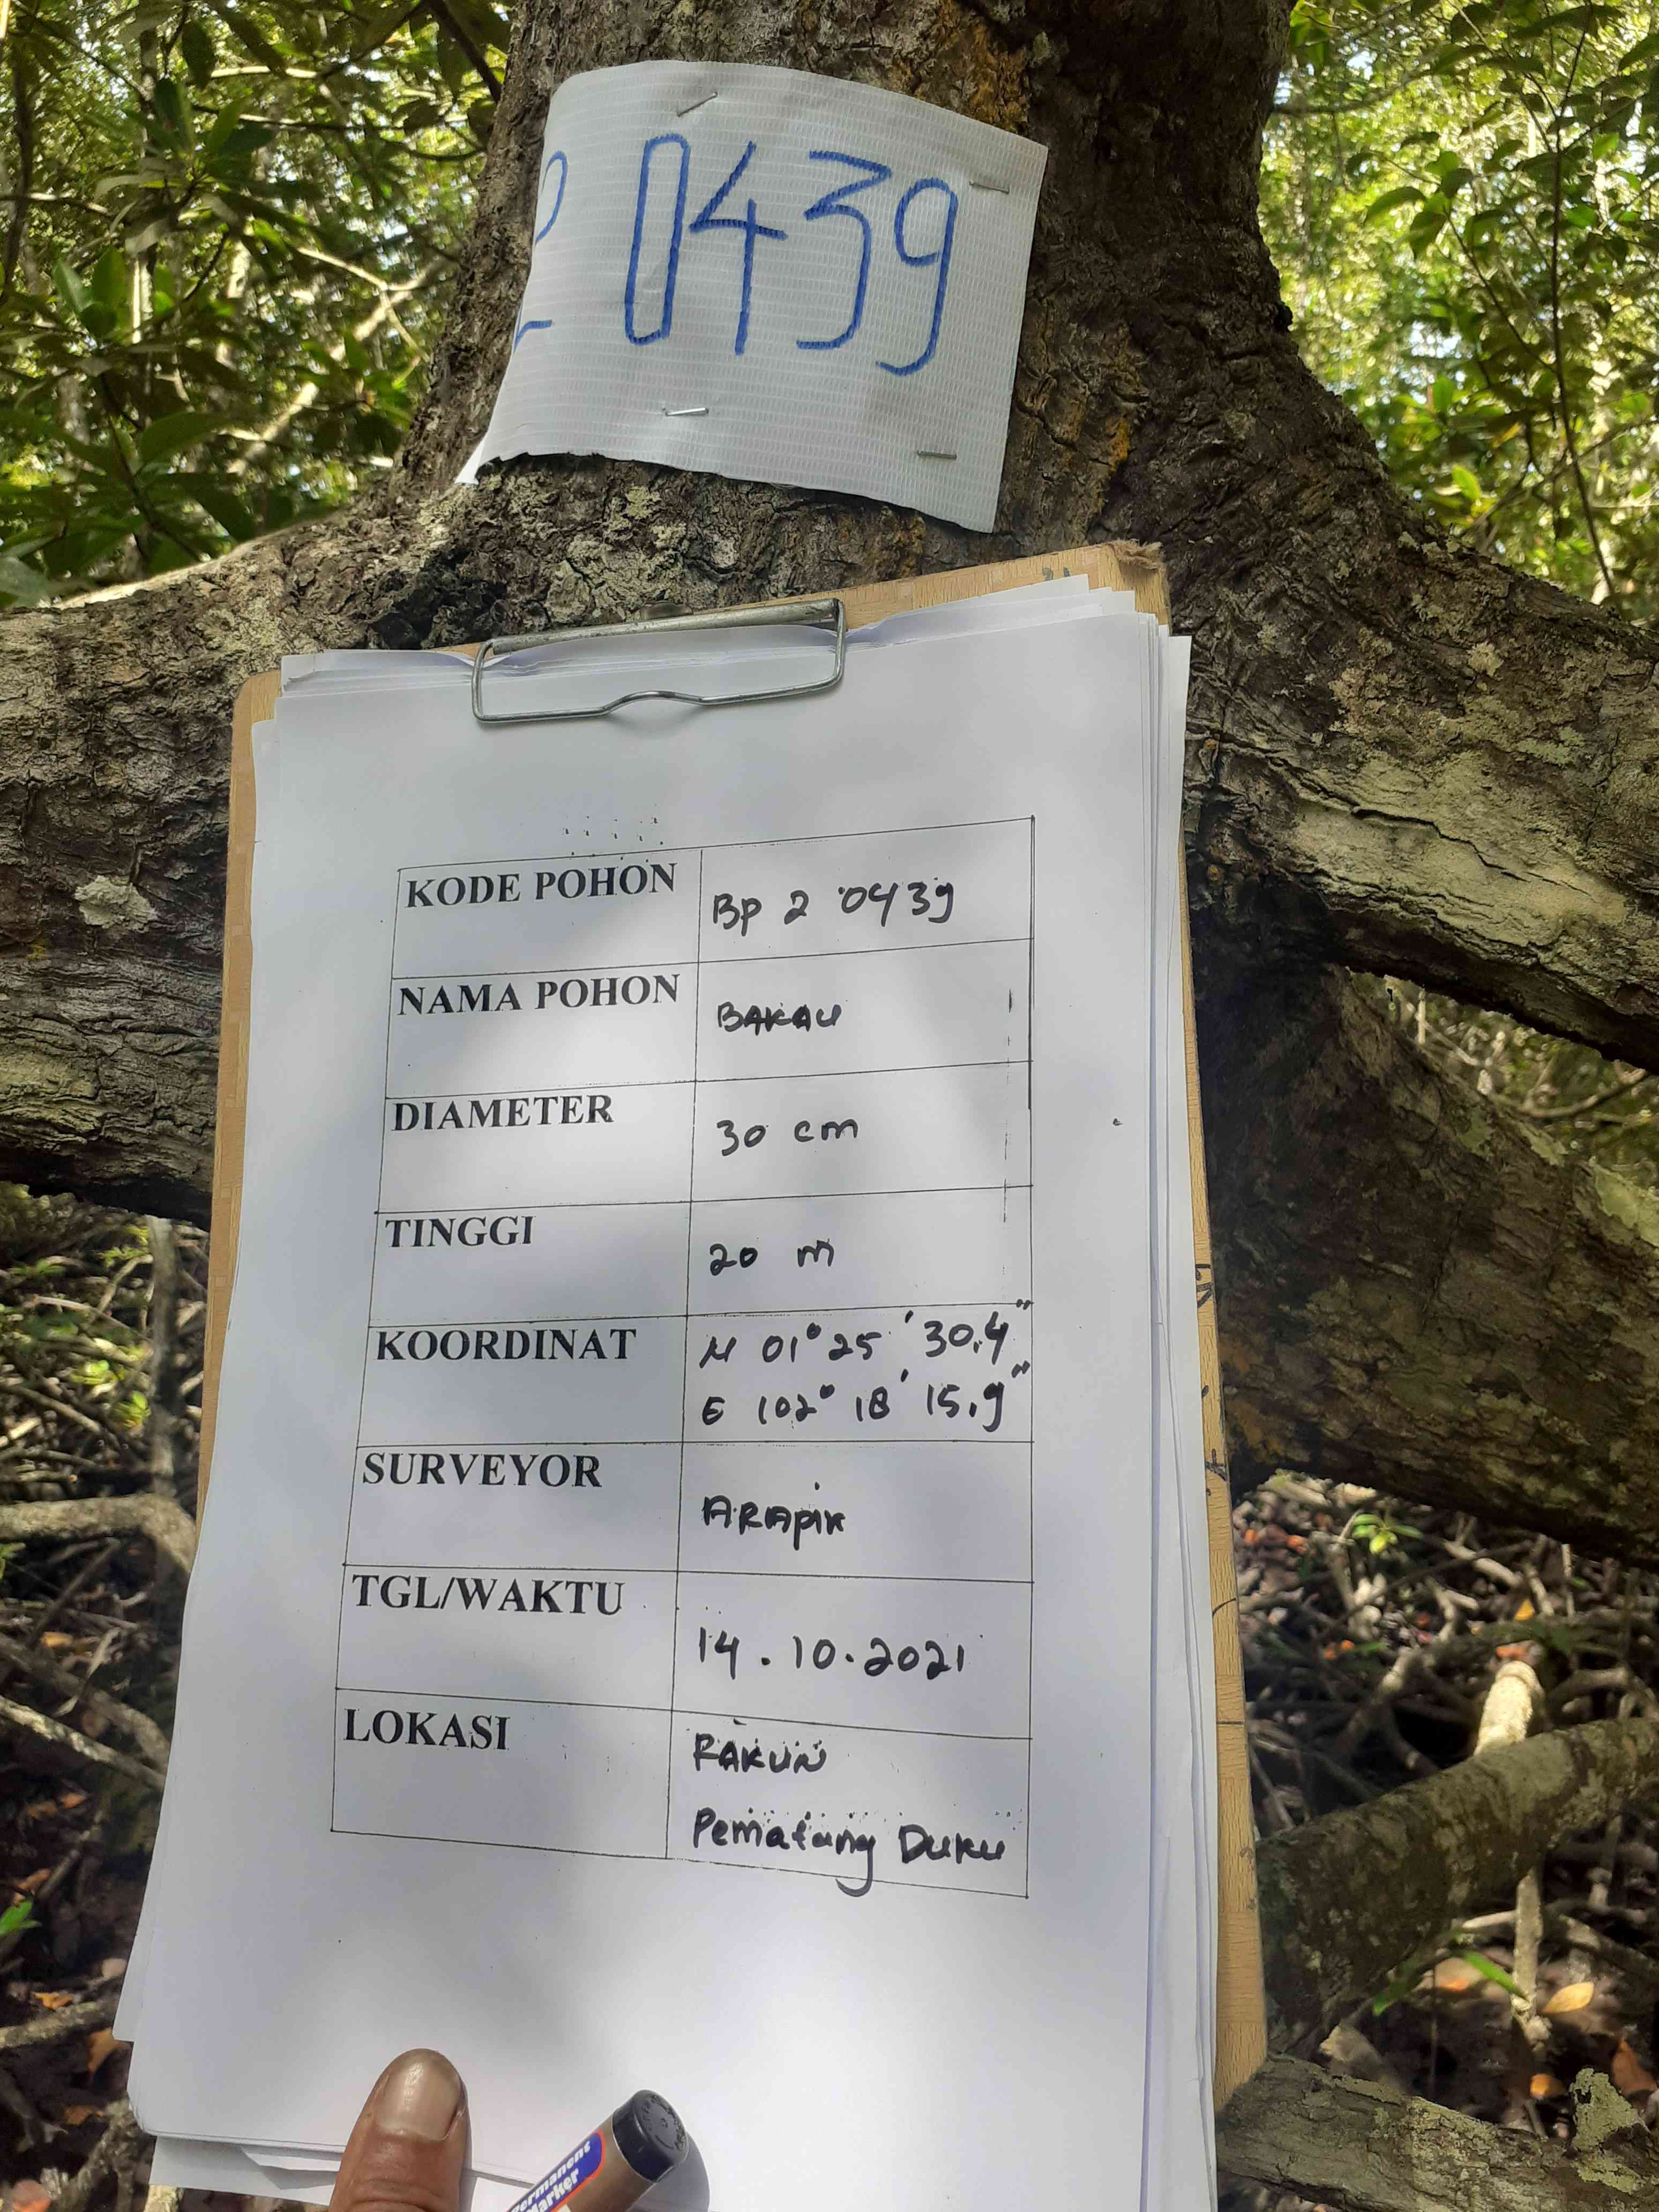 2 0439
KODE POHON
Bp 2 0439
NAMA POHON
BAKAU
DIAMETER
30 cm
TINGGI
20 m
KOORDINAT
N 01° 25 ' 30.4"
E 102° 18' 15.9"
SURVEYOR
ARApik
TGL/WAKTU
14.10.2021
LOKASI
RAKUN
Pematang Duku
Permanent
Marker